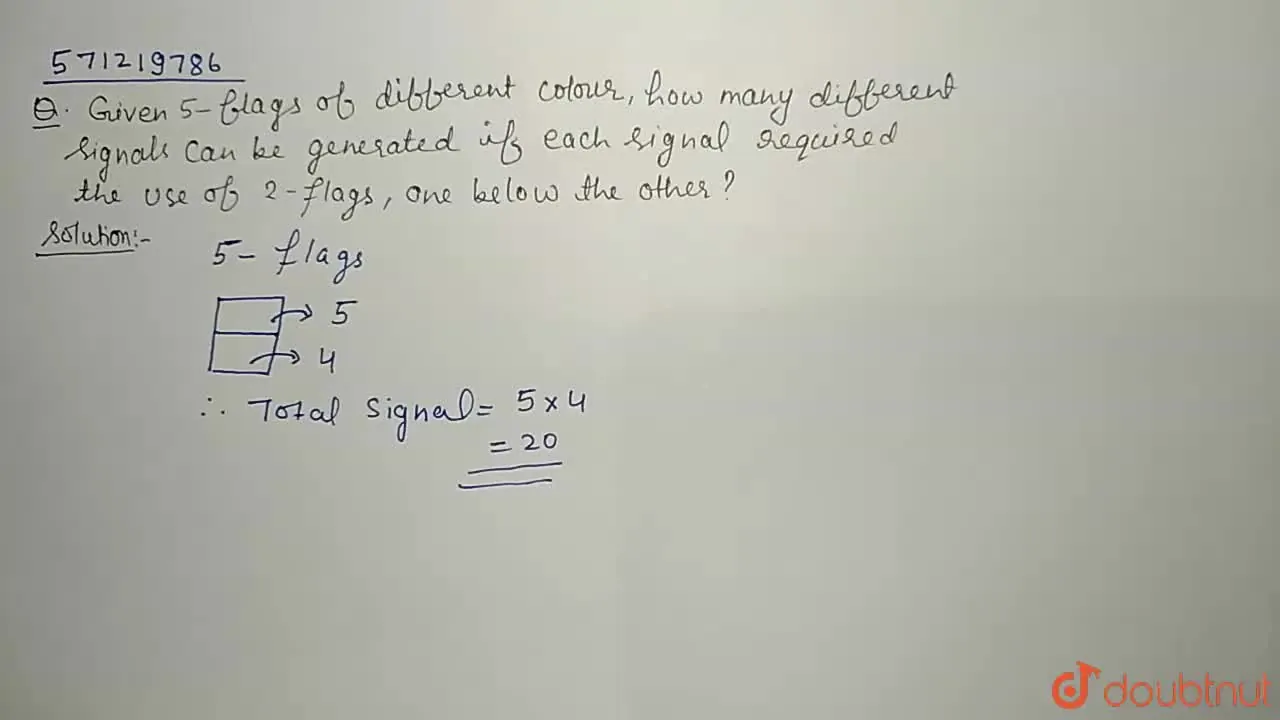 571219786
Q. Given 5-flags of different colour, how many different
signals can be generated if each signal required
the use of 2-flags, one below the other?
Solution:-
5- flags
→ 5
→ 4
∴ Total signal = 5 × 4
= 20
doubtnut